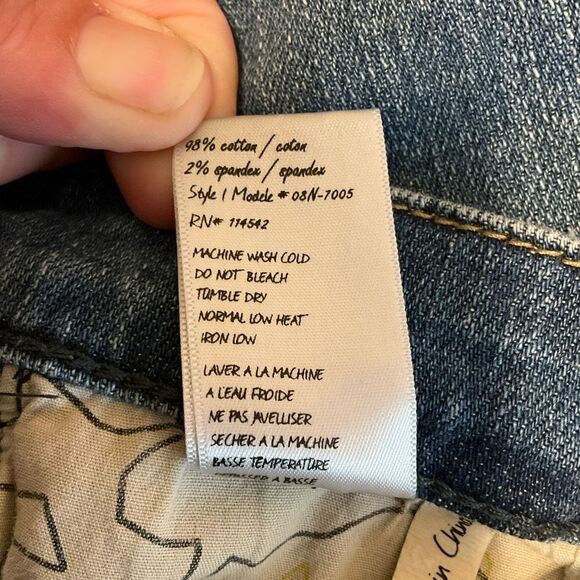 98% cotton / coton
2% spandex / spandex
Style | Modele # 08N-7005
RN# 114542
MACHINE WASH COLD
DO NOT BLEACH
TUMBLE DRY
NORMAL LOW HEAT
IRON LOW
LAVER A LA MACHINE
A L'EAU FROIDE
NE PAS JAVELLISER
SECHER A LA MACHINE
BASSE TEMPERATURE
A BASSE
in